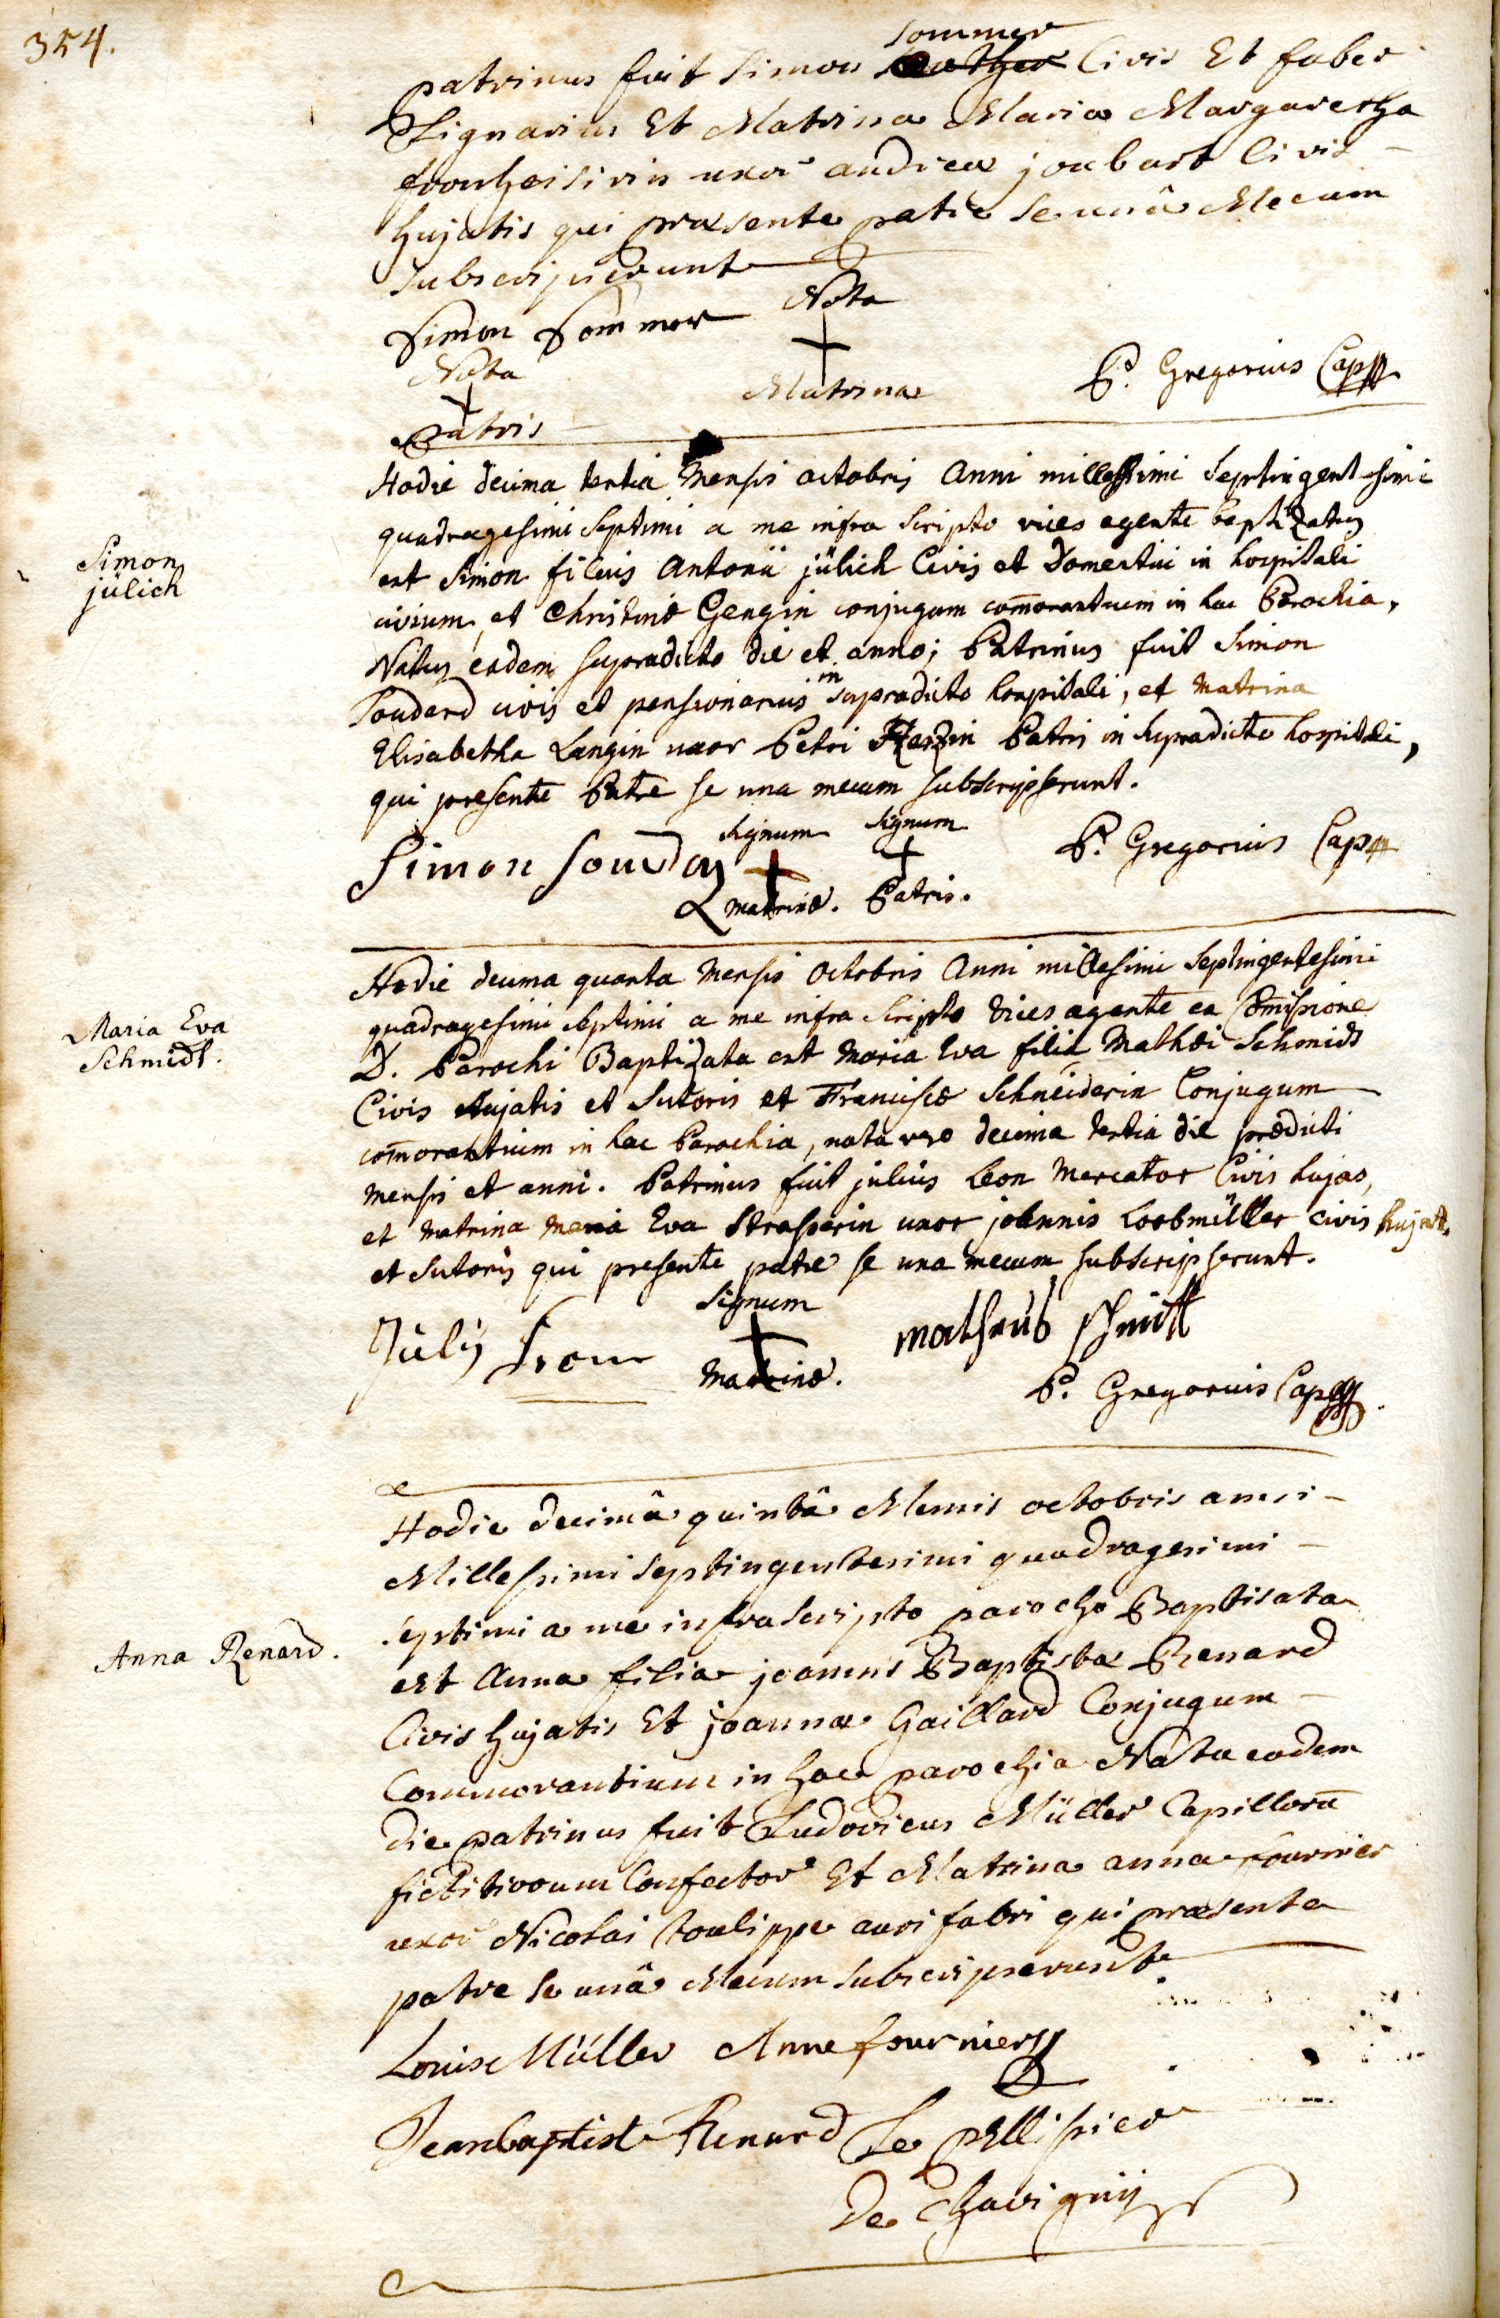 354.
sommer
patrinus fuit Simon Civis Et faber
Lignarius Et Matrina Maria Margaretha
fronheiserin uxor andreæ joubart Civis
hujatis qui præsente patre se unâ Mecum
subscripserunt
Simon Sommer Nota
Nota
Matrinæ P. Gregorius Cap
Patris
Hodie decima tertia Mensis octobris Anni millessimi Septingentesimi
quadragesimi Septimi a me infra Scripto vices agente baptizatus
Simon
jülich
est Simon filius Antonii jülich Civis et Domestici in hospitali
civium, et Christinæ Gengin conjugum com̄orantium in hac Parochia,
Natus eodem supradicto die et anno; Patrinus fuit Simon
Soudard civis et pensionarius in supradicto hospitali, et Matrina
Elisabetha Langin uxor Petri Patris in supradicto hospitali,
qui presente Patre se una mecum subscripserunt.
Signum Signum
Simon P. Gregorius Cap
Matrinæ. Patris.
Hodie decima quarta Mensis Octobris Anni millesimi Septingentesimi
Maria Eva
Schmidt.
quadragesimi Septimi a me infra Scripto vices agente ex Com̄issione
D. Parochi Baptizata est Maria Eva filia Mathæi Schmidt
Civis Hujatis et Sutoris et Franciscæ Schneiderin Conjugum
com̄orantium in hac Parochia, nata vero decima tertia die prædicti
mensis et anni. Patrinus fuit julius Leon Mercator Civis hujas,
et Matrina Maria Eva Strasserin uxor johannis Loobmüller civis hujatis
et Sutoris qui presente patre se una mecum subscripserunt.
Signum
July matheus schmitt
Matrinæ.
P. Gregorius Cap
Hodie decimâ quintâ Mensis octobris anni
Millessimi septingentesimi quadragesimi
Septimi a me infrascripto parocho Baptisata
Anna Renard.
est Anna filia joannis Baptistæ Renard
Civis hujatis Et joannæ Gaillard Conjugum
Commorantium in hac parochia Nata eodem
die patrinus fuit Ludovicus Müller Capillorū
fictitiorum Confector Et Matrina anna fournier
uxor Nicolai toulippe aurifabri qui præsente
patre se unâ Mecum subscripserunt
Louise Müller Anne fournier
Jeanbaptist Renard Le pellissier
De Chavigny